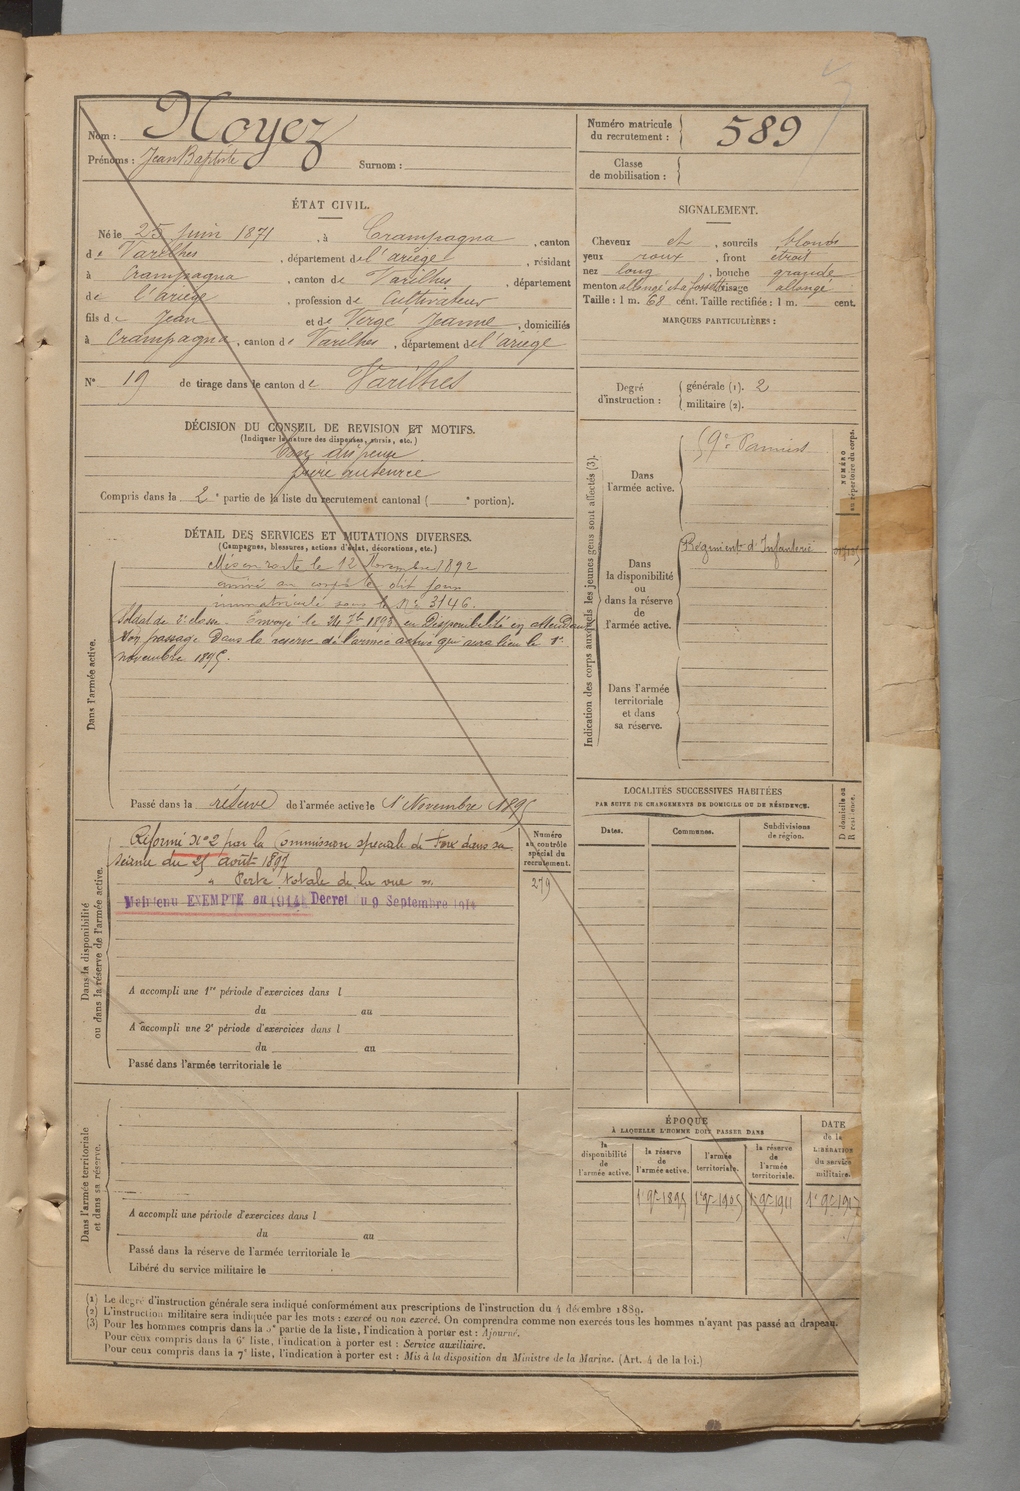 Nom : Noyez
Prénoms : Jean Baptiste Surnom :
Numéro matricule du recrutement : 589
Classe de mobilisation :
ÉTAT CIVIL.
Né le 25 juin 1871, à Crampagna, canton
de Varilhes, département de l'ariège, résidant
à Crampagna, canton de Varilhes, département
de l'ariège, profession de Cultivateur
fils de Jean et de Vergé Jeanne, domiciliés
à Crampagna, canton de Varilhes, département de l'ariège
N° 19 de tirage dans le canton de Varilhes
SIGNALEMENT.
Cheveux et, sourcils blonds
yeux roux, front étroit
nez long, bouche grande
menton allongé et à fossette visage allongé
Taille : 1 m. 68 cent. Taille rectifiée : 1 m. cent.
MARQUES PARTICULIÈRES :
Degré d'instruction : générale (1). 2
militaire (2).
DÉCISION DU CONSEIL DE REVISION ET MOTIFS.
(Indiquer la nature des dispenses, sursis, etc.)
Bon dispensé
Compris dans la 2e partie de la liste du recrutement cantonal ( e portion).
DÉTAIL DES SERVICES ET MUTATIONS DIVERSES.
(Campagnes, blessures, actions d'éclat, décorations, etc.)
Dans l'armée active.
Mis en route le 12 Novembre 1892
arrivé au corps le dit jour
immatriculé sous le N° 3146.
Soldat de 2e classe. Envoyé le 24 7bre 1893 en Disponibilité en attendant
son passage Dans la réserve de l'armée active qui aura lieu le 1er
novembre 1895.
Passé dans la réserve de l'armée active le 1er Novembre 1895
Indication des corps auxquels les jeunes gens sont affectés (3).
NUMÉRO au répertoire du corps.
Dans l'armée active.
59e Pamiers
Dans la disponibilité ou dans la réserve de l'armée active.
Régiment d'Infanterie
Dans l'armée territoriale et dans sa réserve.
LOCALITÉS SUCCESSIVES HABITÉES
PAR SUITE DE CHANGEMENTS DE DOMICILE OU DE RÉSIDENCE.
Dates. Communes. Subdivisions de région. D domicile ou R résidence.
Dans la disponibilité ou dans la réserve de l'armée active.
Réformé N° 2 par la Commission spéciale de Foix dans sa
séance du 25 août 1897
" Perte totale de la vue ".
Maintenu EXEMPTÉ en 1914 Décret du 9 Septembre 1914
Numéro au contrôle spécial du recrutement.
279
A accompli une 1re période d'exercices dans l
du au
A accompli une 2e période d'exercices dans l
du au
Passé dans l'armée territoriale le
Dans l'armée territoriale et dans sa réserve.
A accompli une période d'exercices dans l
du au
Passé dans la réserve de l'armée territoriale le
Libéré du service militaire le
ÉPOQUE
À LAQUELLE L'HOMME DOIT PASSER DANS
la disponibilité de l'armée active. la réserve de l'armée active. l'armée territoriale. la réserve de l'armée territoriale.
DATE de la LIBÉRATION du service militaire.
1er 9bre 1895 1er 9bre 1905 1er 9bre 1911 1er 9bre 1917
(1) Le degré d'instruction générale sera indiqué conformément aux prescriptions de l'instruction du 4 décembre 1889.
(2) L'instruction militaire sera indiquée par les mots : exercé ou non exercé. On comprendra comme non exercés tous les hommes n'ayant pas passé au drapeau.
(3) Pour les hommes compris dans la 5e partie de la liste, l'indication à porter est : Ajourné.
Pour ceux compris dans la 6e liste, l'indication à porter est : Service auxiliaire.
Pour ceux compris dans la 7e liste, l'indication à porter est : Mis à la disposition du Ministre de la Marine. (Art. 4 de la loi.)